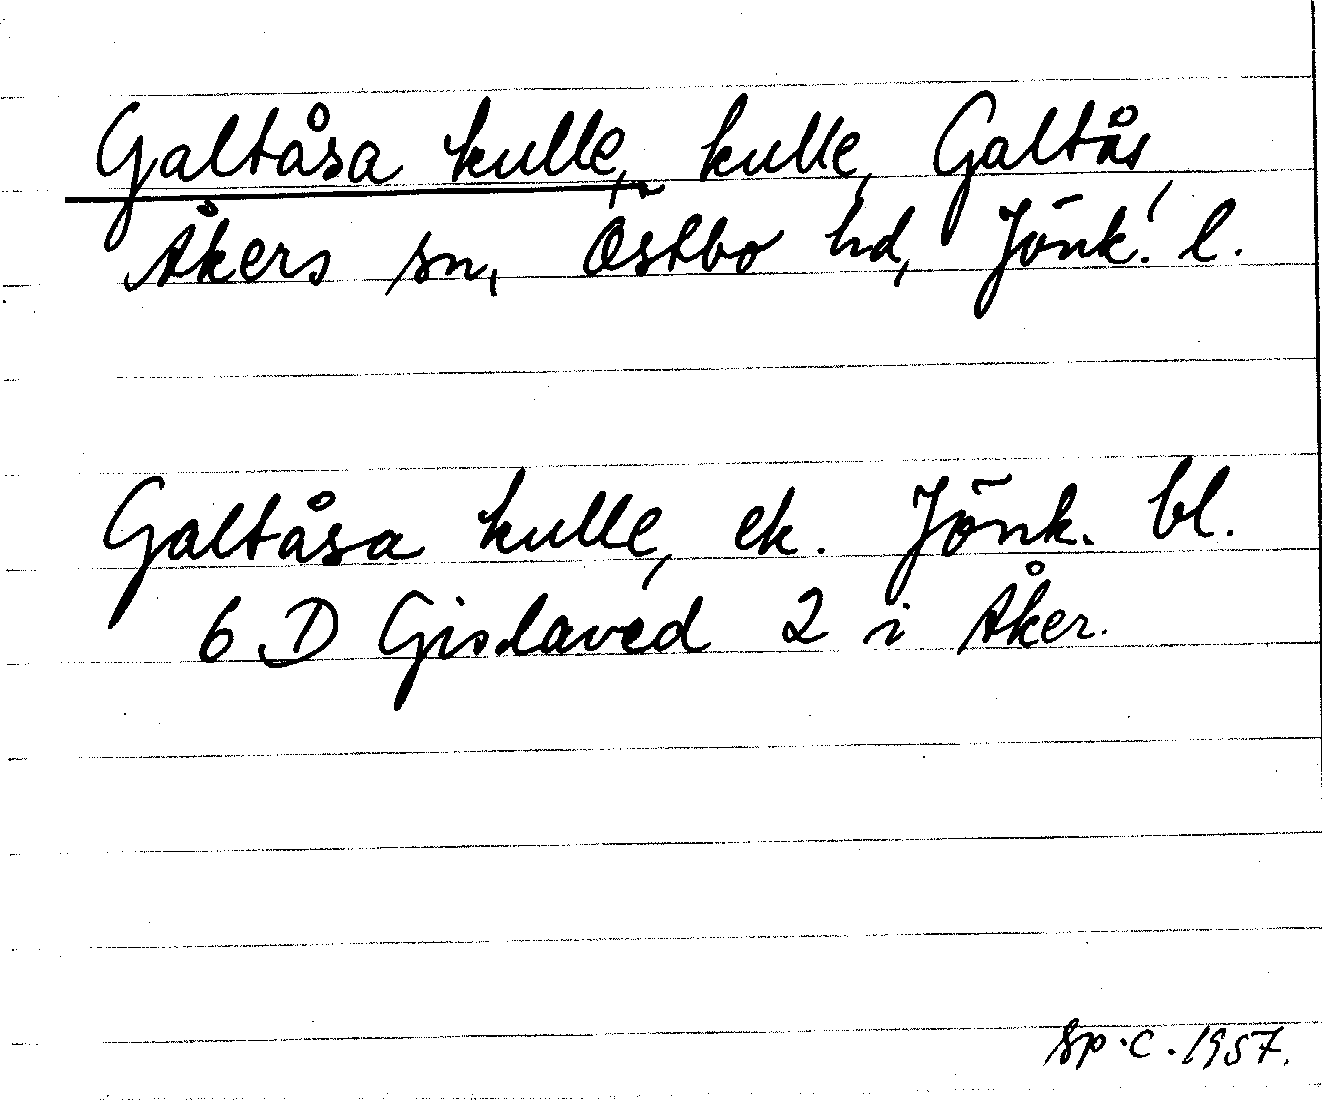 Galtåsa kulle, kulle, Galtås,
Åkers sn, Östbo hd, Jönk. l.
Galtåsa kulle, ek. Jönk. bl.
6 D Gislaved 2 i Åker.
Sp.c. 1957.